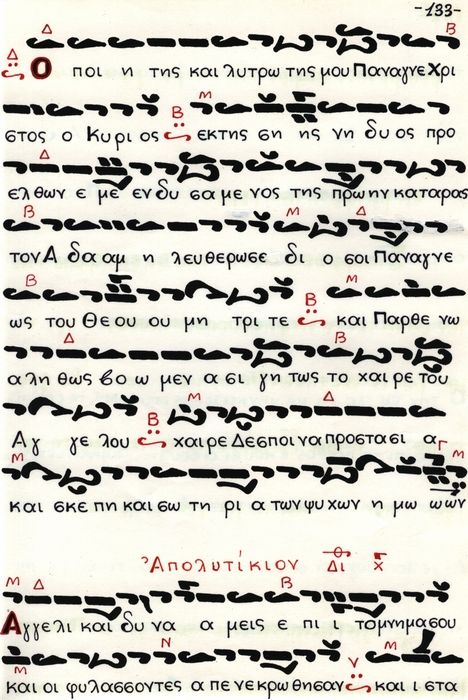 -133-
Ο ποι η της και λυτρω της μου Παναγνε Χρι
στος ο Κυριος εκ της ση ης νη δυ ος προ
ελθων ε με εν δυ σα με νος της πρω ην καταρας
τον Α δα αμ η λευθερωσε δι ο σοι Παναγνε
ως του Θε ου ου μη τρι τε και Παρθε νω
αληθως βο ω μεν α σι γη τως το χαι ρε του
Αγ γε λου χαιρε Δεσποινα προστασι α
και σκε πη και σω τη ρι α των ψυχων η μω ωων
Ἀπολυτίκιον Δι χ
Αγγελι και δυ να α μεις ε πι το μνημα σου
και οι φυλασσοντες α πε νεκρωθησαν και ι στα